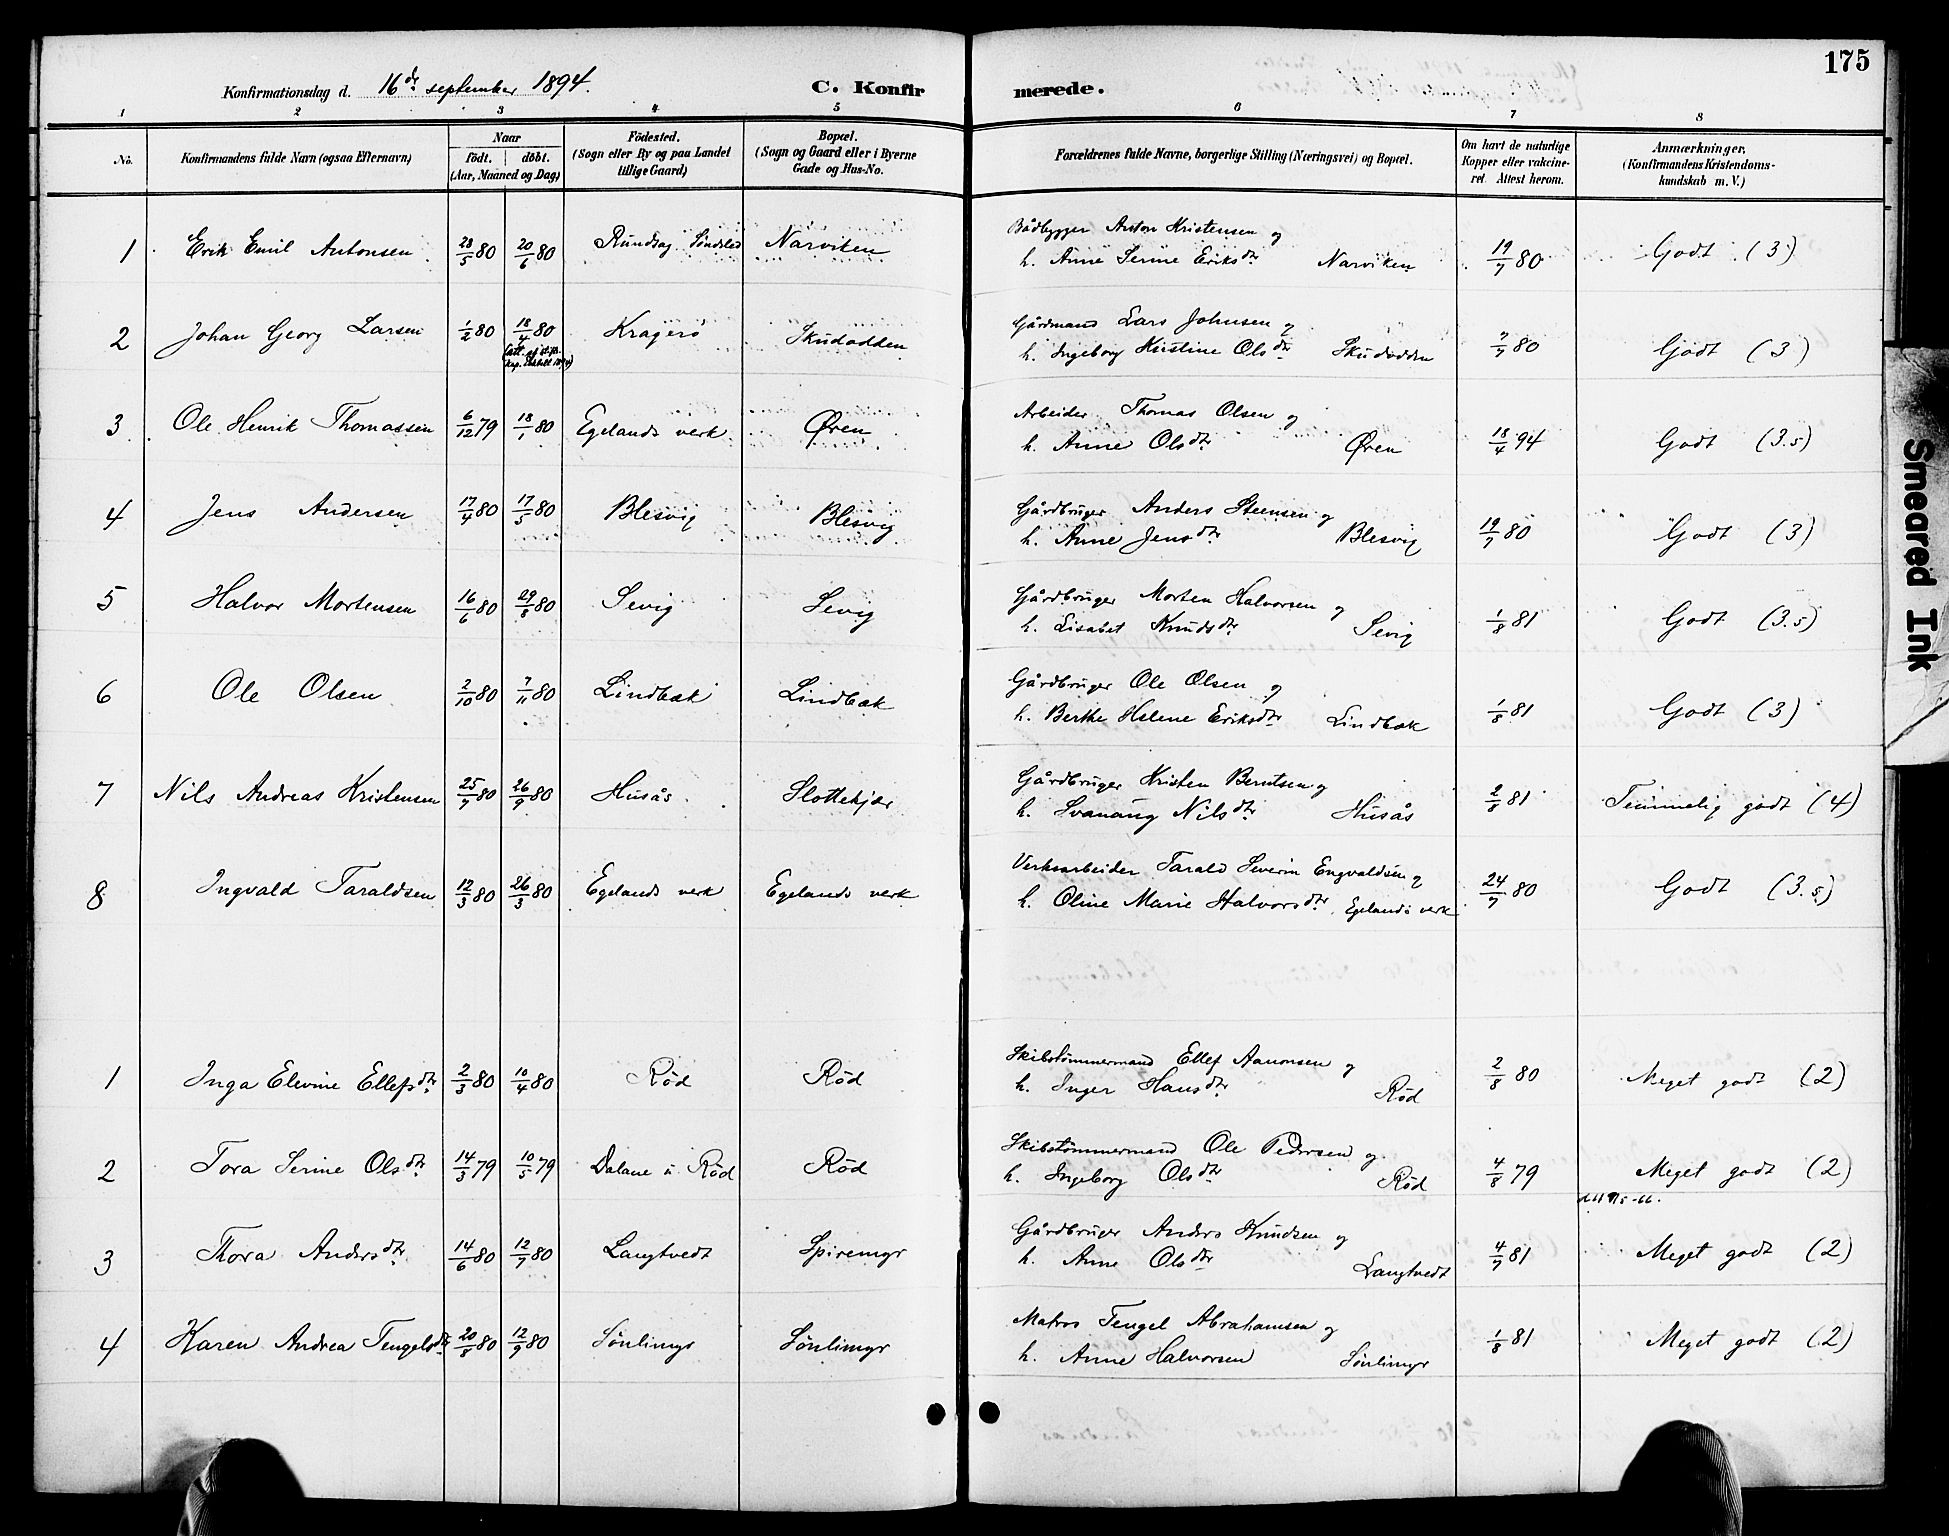 175
Konfirmationsdag d. 16de september 1894.
C. Konfirmerede.
1 2 3 4 5 6 7 8
No.
Konfirmandens fulde Navn (ogsaa Efternavn)
Naar
födt. döbt.
(Aar, Maaned og Dag)
Födested.
(Sogn eller By og paa Landet
tillige Gaard)
Bopæl.
(Sogn og Gaard eller i Byerne
Gade og Hus-No.
Forældrenes fulde Navne, borgerlige Stilling (Næringsvei) og Bopæl.
Om havt de naturlige
Kopper eller vakcine-
ret. Attest herom.
Anmærkninger,
(Konfirmandens Kristendoms-
kundskab m. V.)
1 Erik Emil Antonsen 28/5 80 20/6 80 Søndeled Narviken Bådbygger Anton Kristensen og
h. Anne Serine Eriksdtr Narviken 19/7 80 Godt (3)
2 Johan Georg Larsen 1/2 80 18/4 80 Kragerø Skudodden Gårdmand Lars Johnsen og
h. Ingeborg Kirstine Olsdtr Skudodden 7/7 80 Godt (3)
3 Ole Henrik Thomassen 6/12 79 18/1 80 Egelands verk Øren Arbeider Thomas Olsen og
h. Anne Olsdtr Øren 18/4 94 Godt (3.5)
4 Jens Andersen 17/4 80 17/5 80 Blesvig Blesvig Gårdbruger Anders Steensen og
h. Anne Jensdtr Blesvig 19/7 80 Godt (3)
5 Halvor Mortensen 16/6 80 29/8 80 Sevig Sevig Gårdbruger Morten Halvorsen og
h. Lisabet Knudsdtr Sevig 1/8 81 Godt (3.5)
6 Ole Olsen 2/10 80 7/11 80 Lindbæk Lindbæk Gårdbruger Ole Olsen og
h. Berthe Helene Eriksdtr Lindbæk 1/8 81 Godt (3)
7 Nils Andreas Kristensen 25/7 80 26/9 80 Husås Slottekjær Gårdbruger Kristen Berntsen og
h. Svanaug Nilsdtr Husås 2/8 81 Temmelig godt (4)
8 Ingvald Taraldsen 12/3 80 26/3 80 Egelands verk Egelands verk Verksarbeider Tarald Severin Engvaldsen og
h. Oline Marie Halvorsdtr Egelands verk 24/7 80 Godt (3.5)
1 Inga Elevine Ellefsdtr 2/3 80 10/4 80 Rød Rød Skibstømmermand Ellef Aanonsen og
h. Inger Hansdtr Rød 2/8 80 Meget godt (2)
2 Tora Serine Olsdtr 14/3 79 10/5 79 Dalane u. Rød Rød Skibstømmermand Ole Pedersen og
h. Ingeborg Olsdtr Rød 4/8 79 Meget godt (2)
3 Thora Andersdtr 14/6 80 12/9 80 Langtvedt Spiremyr Gårdbruger Anders Knudsen og
h. Anne Olsdtr Langtvedt 4/7 81 Meget godt (2)
4 Karen Andrea Tengelsdtr 20/8 80 12/9 80 Sønlimyr Sønlimyr Matros Tengel Abrahamsen og
h. Anne Halvorsen Sønlimyr 1/8 81 Meget godt (2)
Smeared Ink